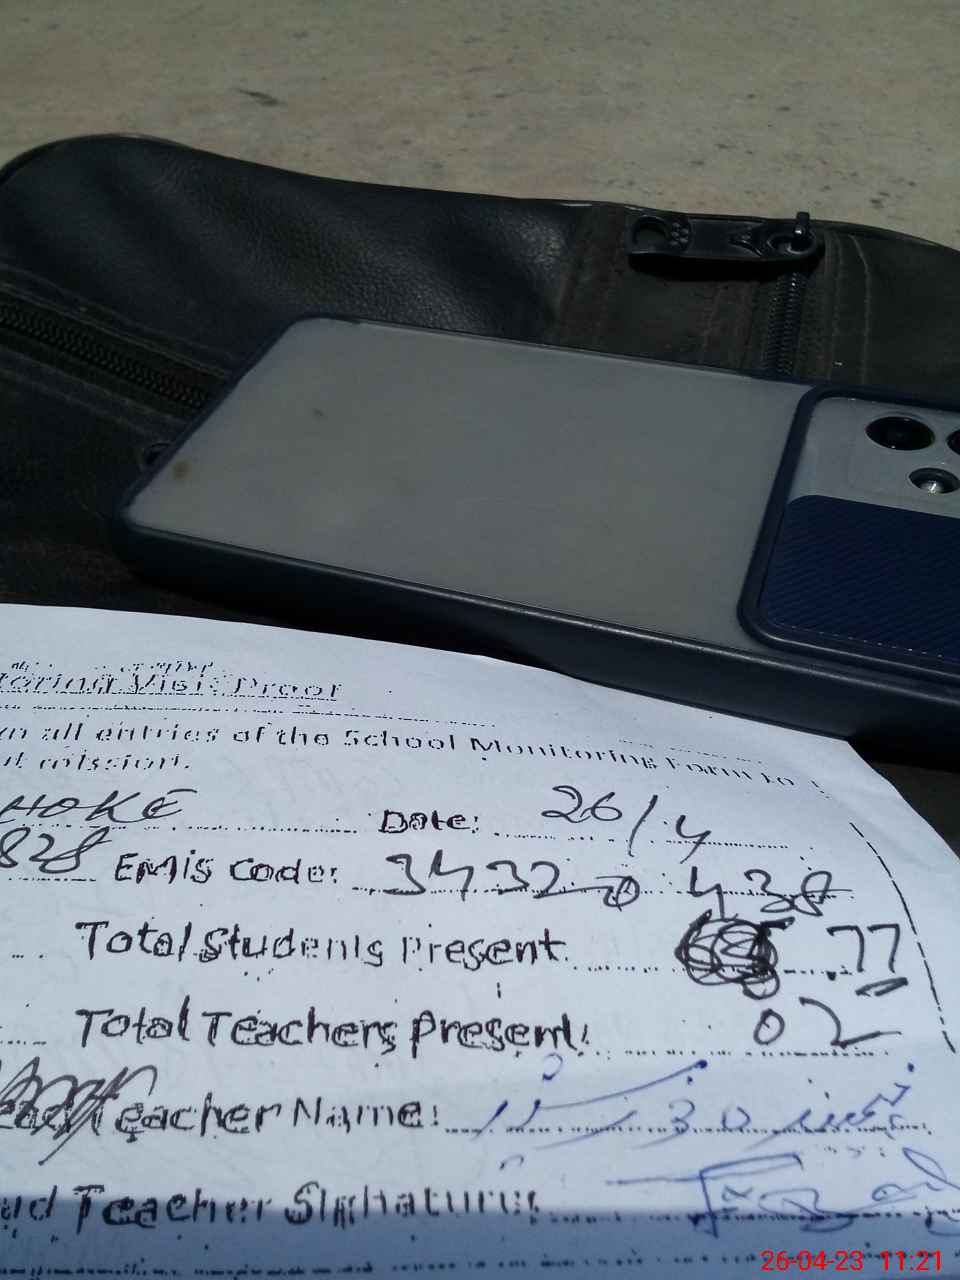 toring Visit Proof
all entries of the School Monitoring Form to
mission.
HOKE Date: 26/4
828 EMIS Code: 34320 438
Total Students Present 77
Total Teachers Present: 02
ead Teacher Name:
ad Teacher Signature:
26-04-23 11:21